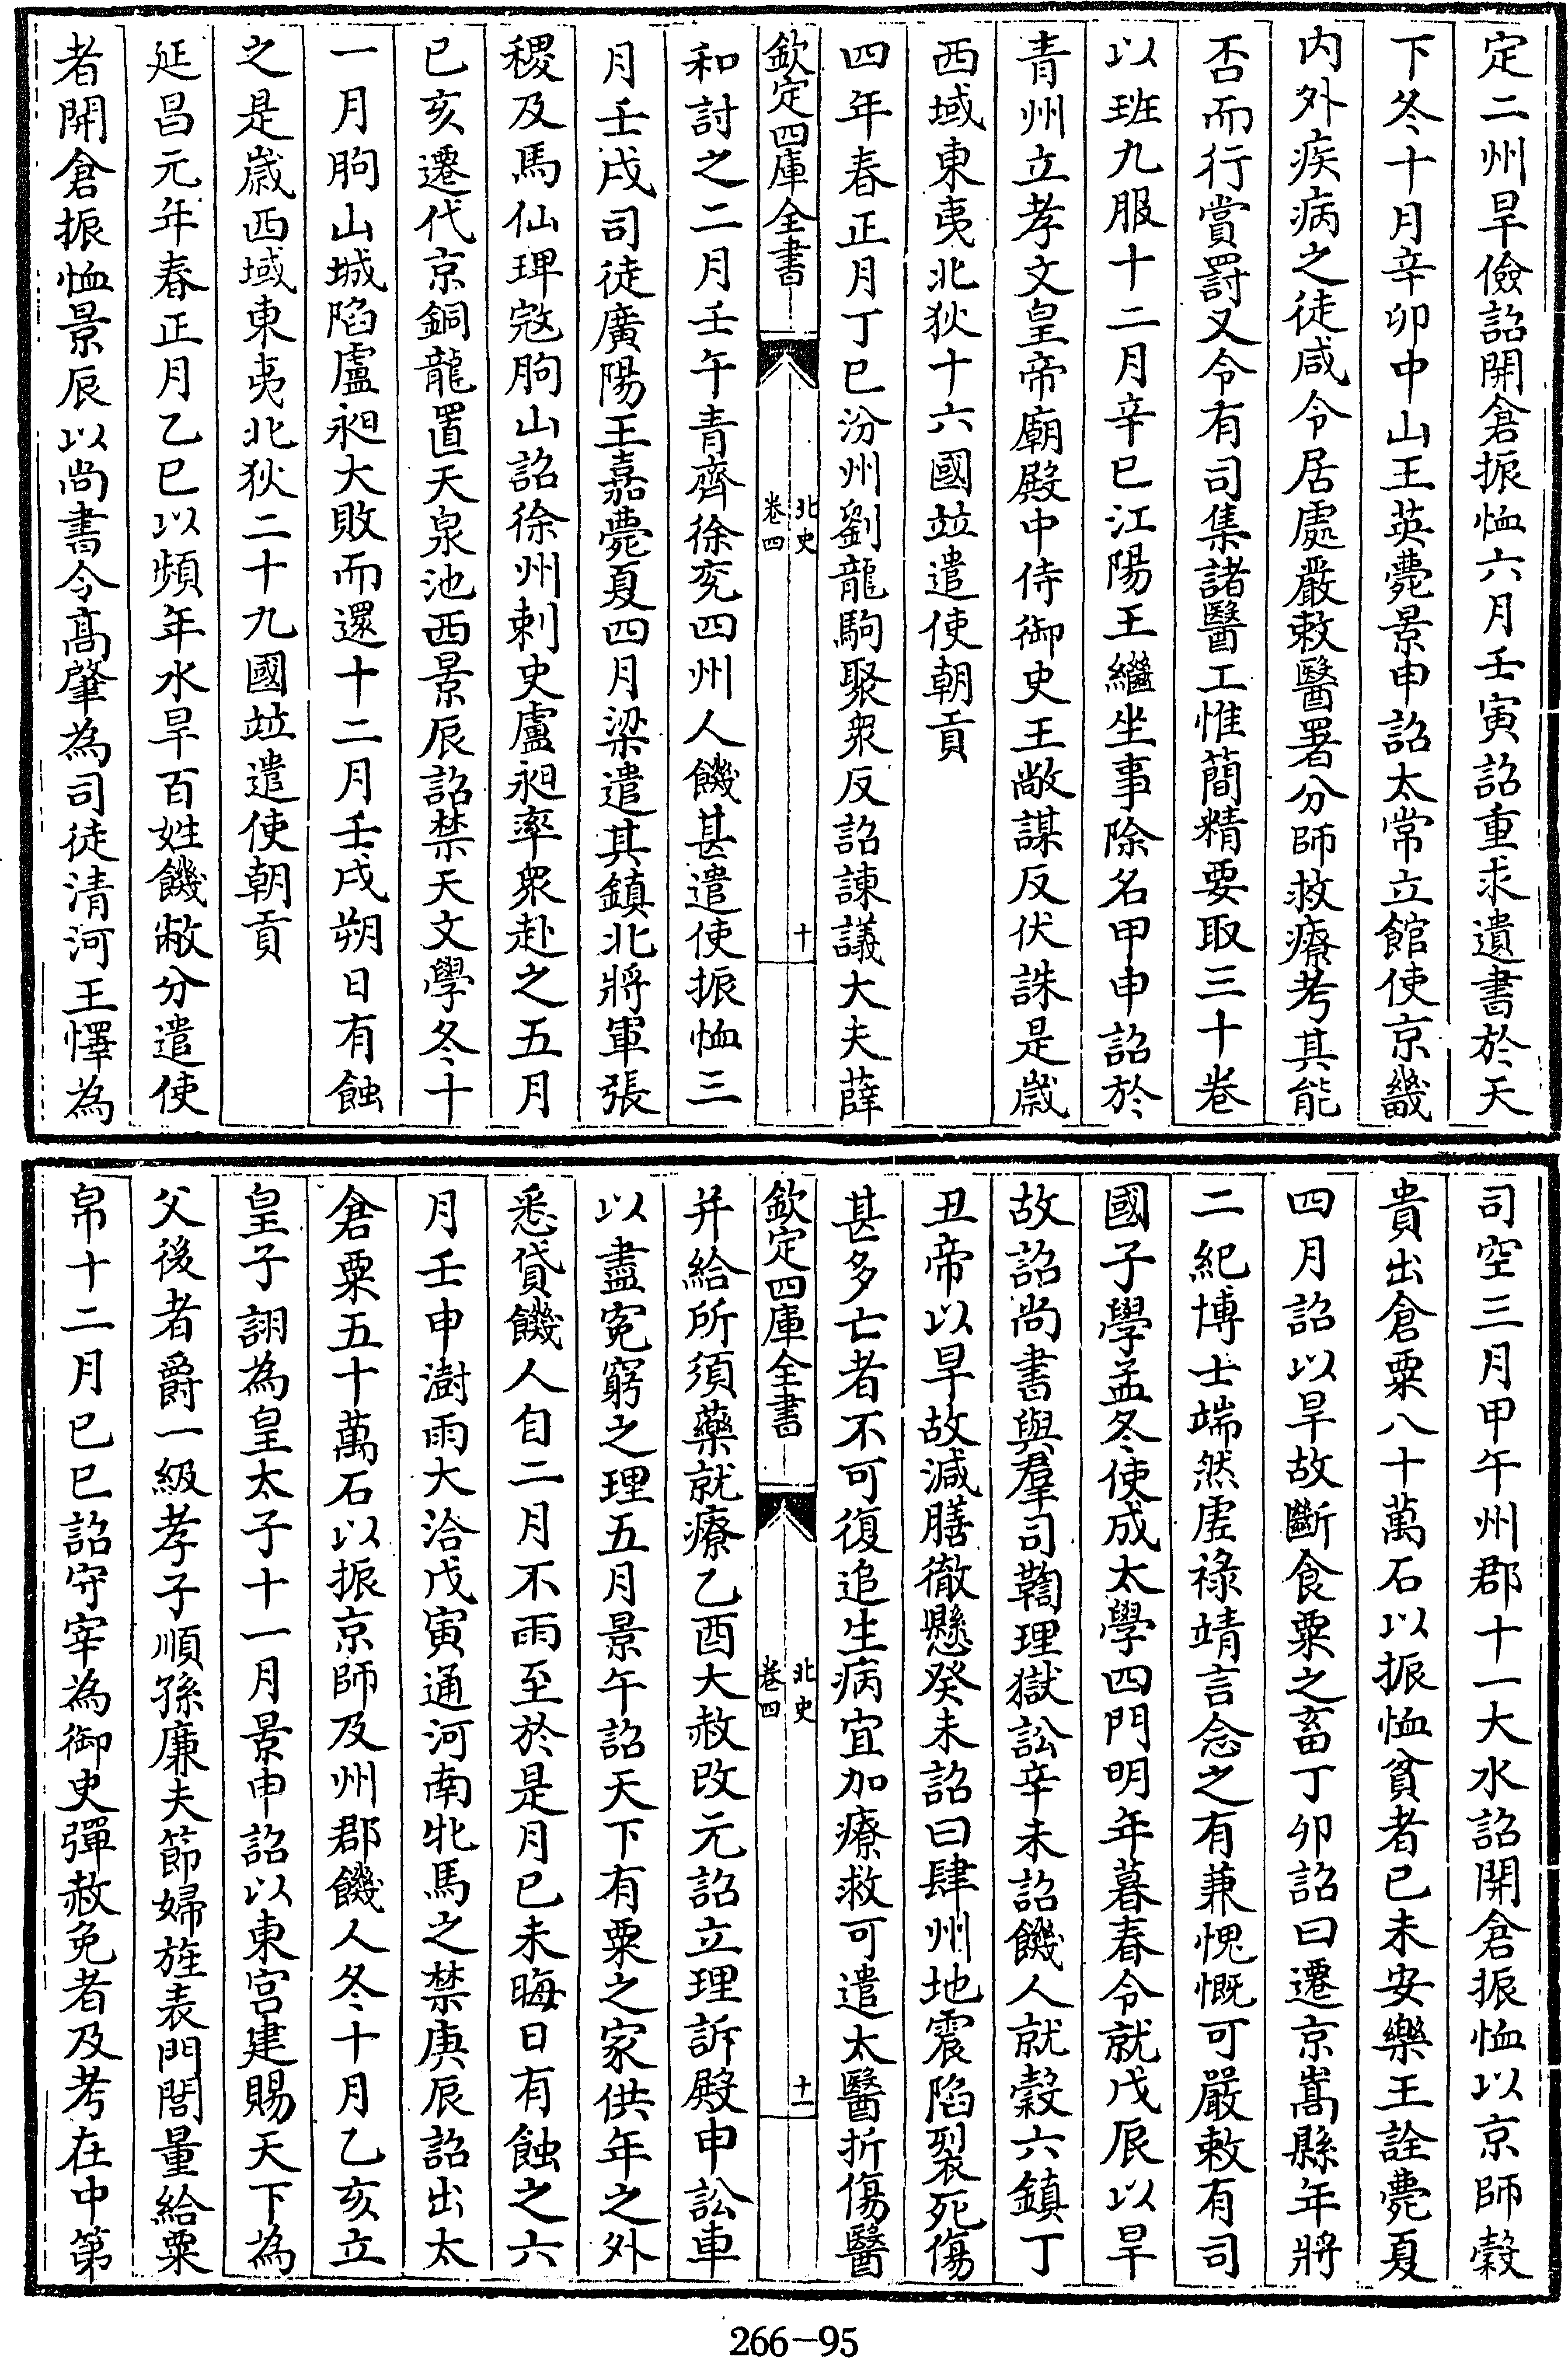 定二州旱儉詔開倉振恤六月壬寅詔重求遺書於天
下冬十月辛卯中山王英薨景申詔太常立館使京畿
内外疾病之徒咸令居處嚴敕醫署分師救療考其能
否而行賞罰又令有司集諸醫工惟簡精要取三十卷
以班九服十二月辛巳江陽王繼坐事除名甲申詔於
青州立孝文皇帝廟殿中侍御史王敞謀反伏誅是歲
西域東夷北狄十六國竝遣使朝貢
四年春正月丁巳汾州劉龍駒聚衆反詔諫議大夫薛
欽定四庫全書
北史
卷四
十
和討之二月壬午青齊徐兖四州人饑甚遣使振恤三
月壬戌司徒廣陽王嘉薨夏四月梁遣其鎮北將軍張
稷及馬仙琕寇朐山詔徐州刺史盧昶率衆赴之五月
已亥遷代京銅龍置天泉池西景辰詔禁天文學冬十
一月朐山城陷盧昶大敗而還十二月壬戌朔日有蝕
之是歲西域東夷北狄二十九國竝遣使朝貢
延昌元年春正月乙巳以頻年水旱百姓饑敝分遣使
者開倉振恤景辰以尚書令髙肇為司徒清河王懌為
司空三月甲午州郡十一大水詔開倉振恤以京師榖
貴出倉粟八十萬石以振恤貧者已未安樂王詮薨夏
四月詔以旱故斷食粟之畜丁卯詔曰遷京嵩縣年將
二紀博士端然虚祿靖言念之有兼愧慨可嚴敕有司
國子學孟冬使成太學四門明年暮春令就戊辰以旱
故詔尚書與羣司鞫理獄訟辛未詔饑人就穀六鎮丁
丑帝以旱故減膳徹懸癸未詔曰肆州地震陷裂死傷
甚多亡者不可復追生病宜加療救可遣太醫折傷醫
欽定四庫全書
北史
卷四
十一
并給所須藥就療乙酉大赦改元詔立理訴殿申訟車
以盡寃窮之理五月景午詔天下有粟之家供年之外
悉貸饑人自二月不雨至於是月已未晦日有蝕之六
月壬申澍雨大洽戊寅通河南牝馬之禁庚辰詔出太
倉粟五十萬石以振京師及州郡饑人冬十月乙亥立
皇子詡為皇太子十一月景申詔以東宫建賜天下為
父後者爵一級孝子順孫廉夫節婦旌表門閭量給粟
帛十二月已巳詔守宰為御史彈赦免者及考在中第
266-95